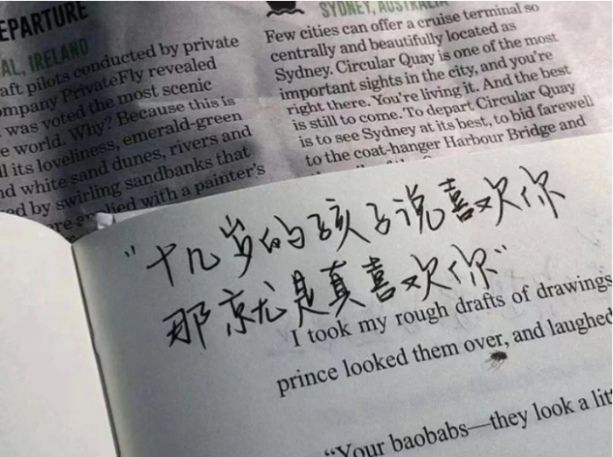 EPARTURE
AL, IRELAND
aft pilots conducted by private
ompany PrivateFly revealed
was voted the most scenic
e world. Why? Because this is
ll its loveliness, emerald-green
nd white sand dunes, rivers and
ed by swirling sandbanks that
with a painter's
SYDNEY, AUSTRALIA
Few cities can offer a cruise terminal so
centrally and beautifully located as
Sydney. Circular Quay is one of the most
important sights in the city, and you're
right there. You're living it. And the best
is still to come. To depart Circular Quay
is to see Sydney at its best, to bid farewell
to the coat-hanger Harbour Bridge and
"十几岁的孩子说喜欢你
那就是真喜欢你"
I took my rough drafts of drawings
prince looked them over, and laughed
"Your baobabs—they look a lit